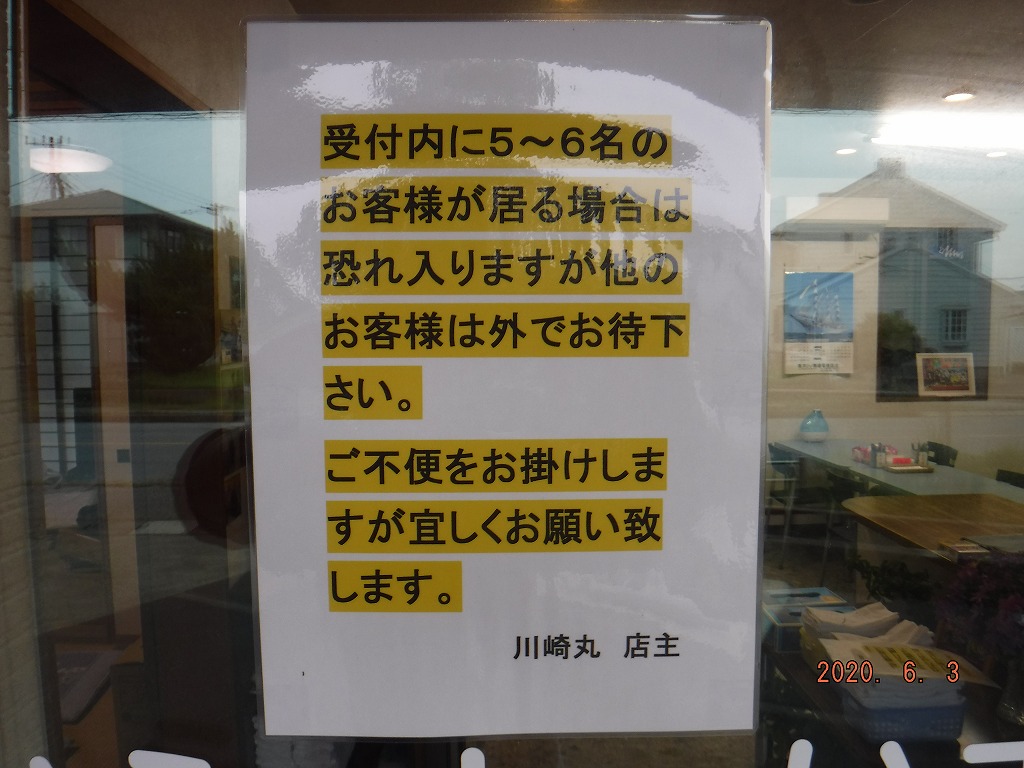 受付内に5～6名の
お客様が居る場合は
恐れ入りますが他の
お客様は外でお待下
さい。
ご不便をお掛けしま
すが宜しくお願い致
します。
川崎丸　店主
2020. 6. 3